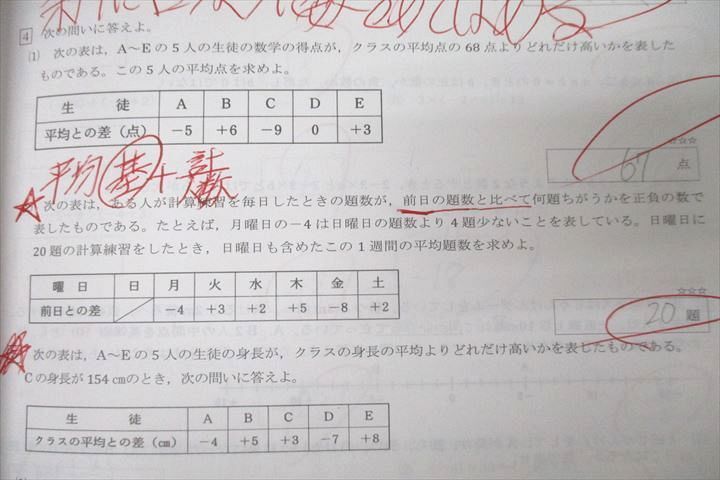 4 次の問いに答えよ。
(1) 次の表は，A～Eの5人の生徒の数学の得点が，クラスの平均点の68点よりどれだけ高いかを表した
ものである。この5人の平均点を求めよ。
生 徒 A B C D E
平均との差(点) －5 ＋6 －9 0 ＋3
67 点
平均 基＋
次の表は，ある人が計算練習を毎日したときの題数が，前日の題数と比べて何題ちがうかを正負の数で
表したものである。たとえば，月曜日の－4は日曜日の題数より4題少ないことを表している。日曜日に
20題の計算練習をしたとき，日曜日も含めたこの1週間の平均題数を求めよ。
曜 日 日 月 火 水 木 金 土
前日との差 －4 ＋3 ＋2 ＋5 －8 ＋2
☆☆☆
20 題
次の表は，A～Eの5人の生徒の身長が，クラスの身長の平均よりどれだけ高いかを表したものである。
Cの身長が154cmのとき，次の問いに答えよ。
生 徒 A B C D E
クラスの平均との差(cm) －4 ＋5 ＋3 －7 ＋8